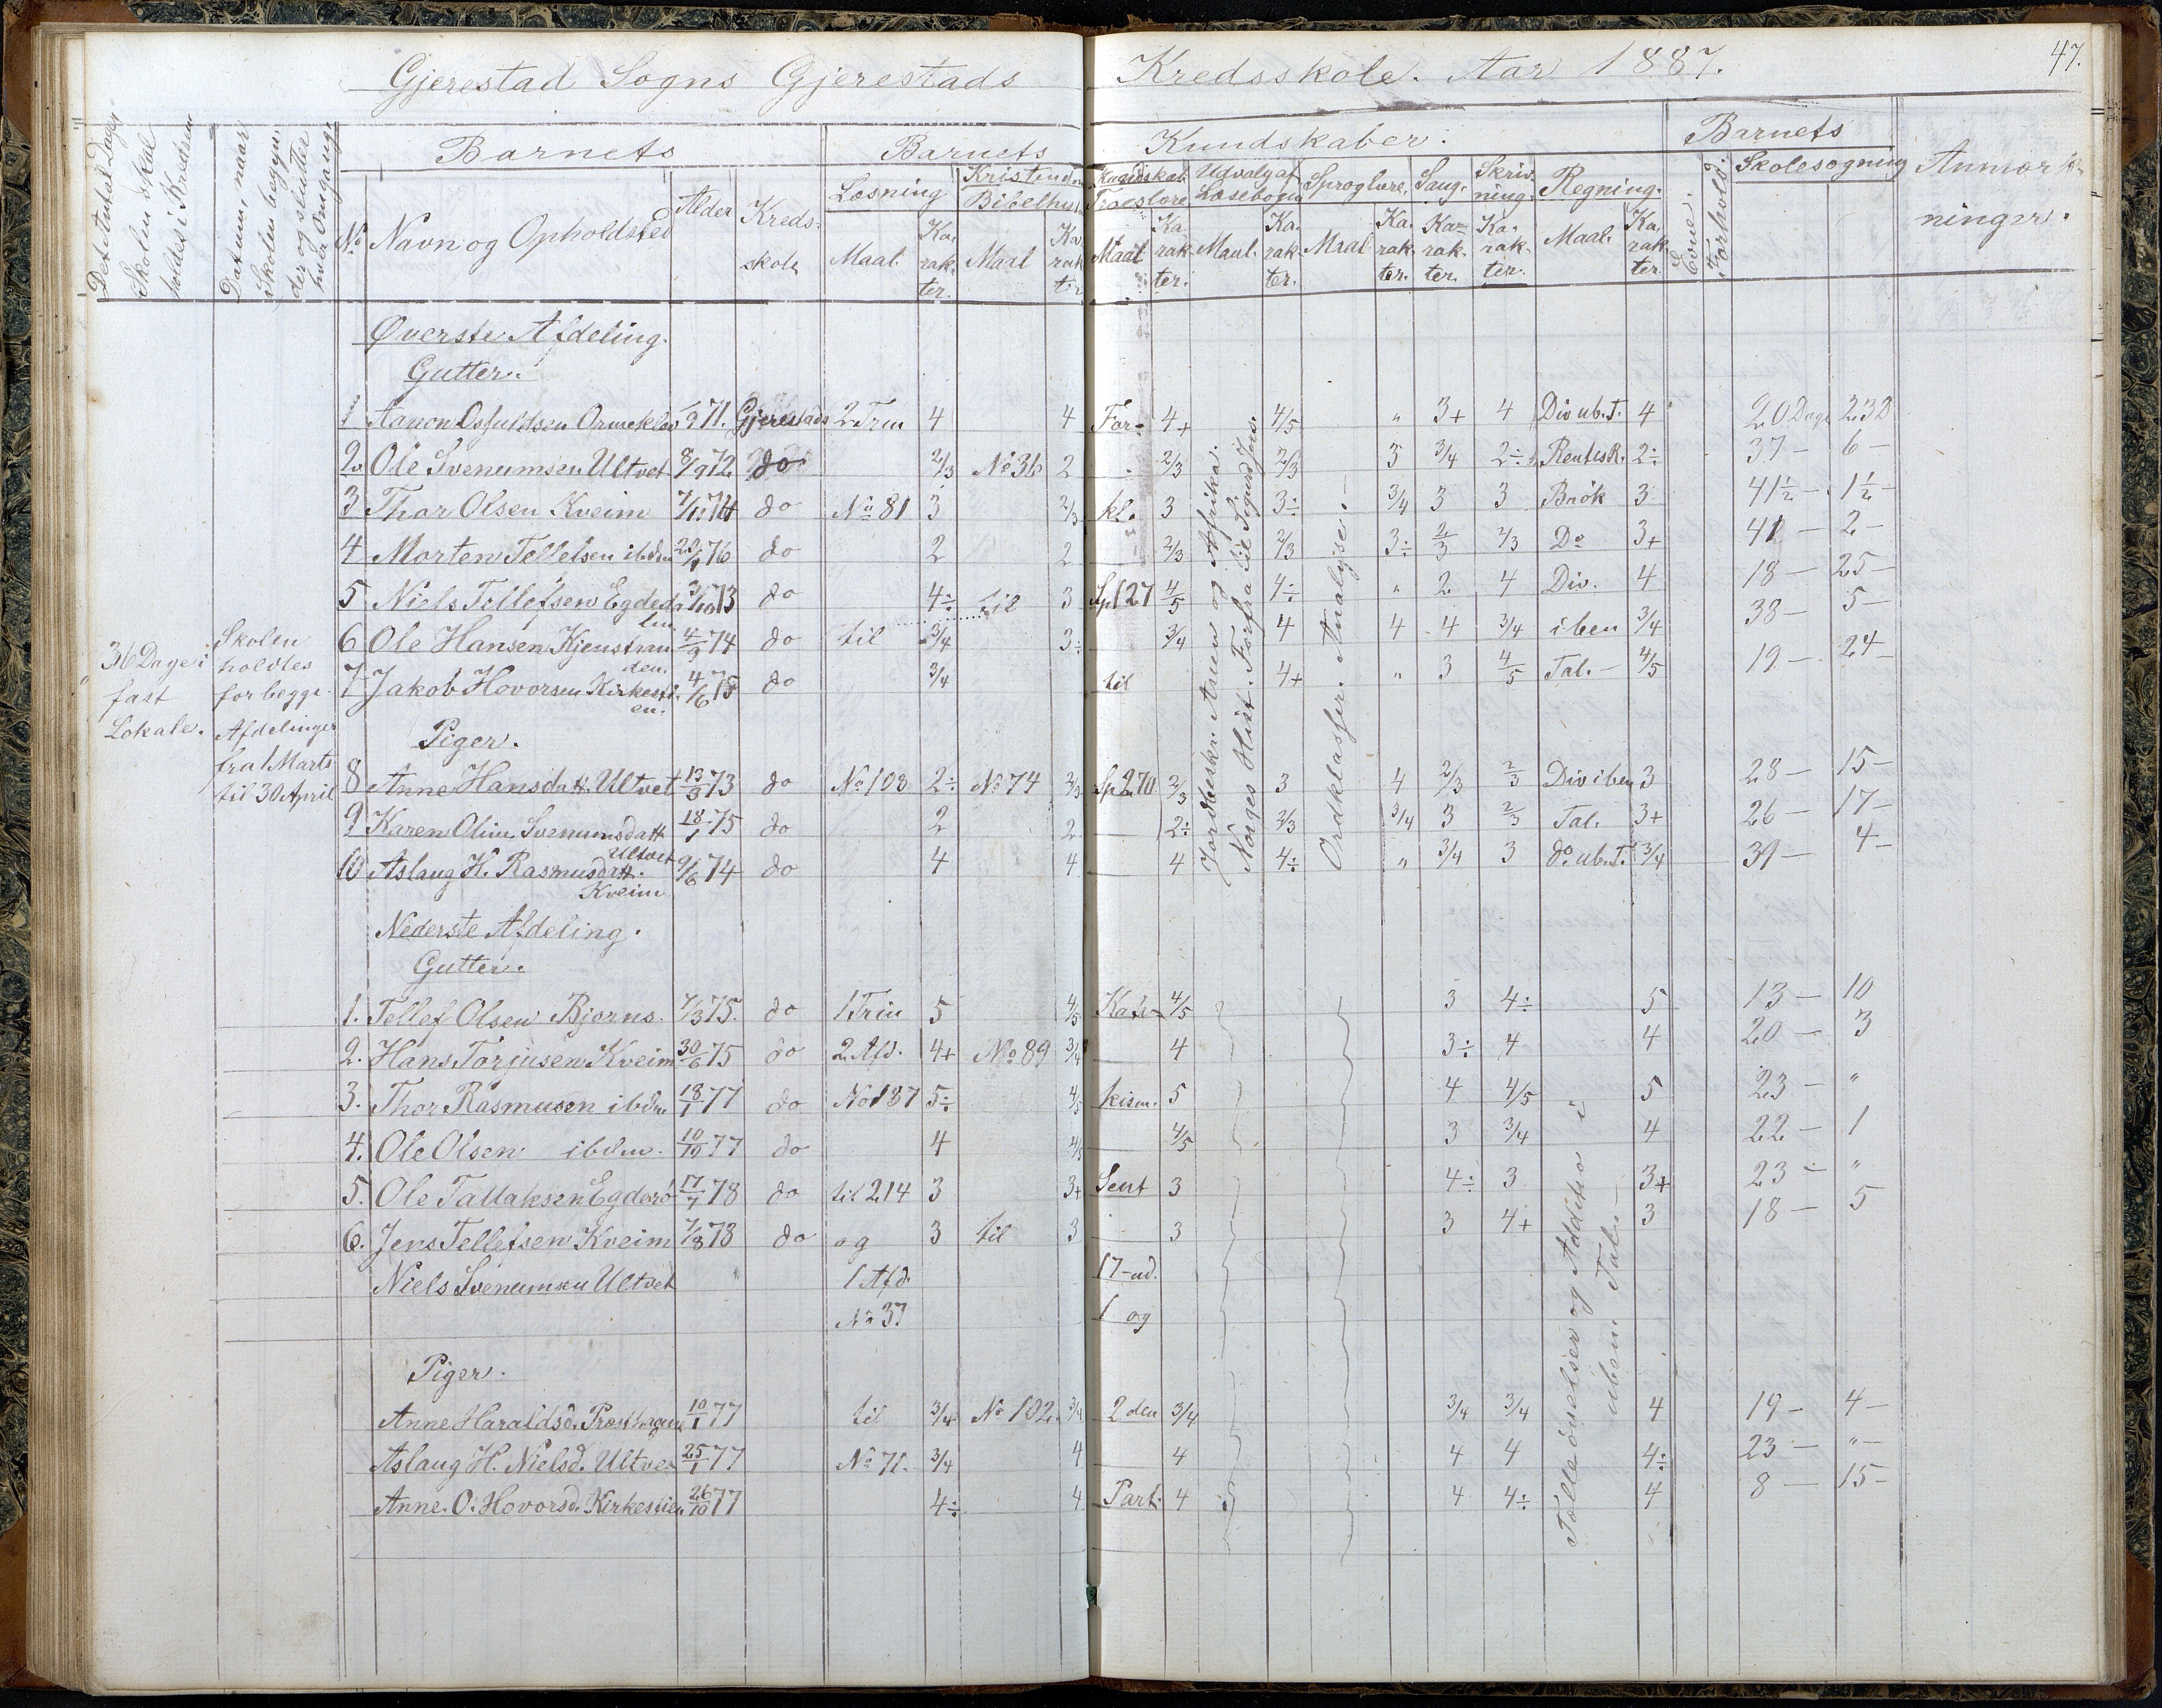 Gjerestad Sogns Gjerestads Kredsskole. Aar 1887. 47.
Det Antal Dage Skolen skal holdes i Kredsen
Datum, naar Skolen begynder og slutter hver Omgang.
Barnets
No Navn og Opholdsted Alder Kredsskole
Barnets Kundskaber.
Læsning Maal. Karakter.
Kristendom Bibelhist. Maal Karakter
Kristendomskundskab Troeslære Maal Karakter.
Udvalg af Læsebogen Maal. Karakter.
Sproglære. Maal Karakter.
Sang. Karakter.
Skrivning. Karakter.
Regning. Maal. Karakter.
Barnets
Evne. Forhold. Skolesøgning
Anmærkninger.
36 Dage i fast Lokale.
Skolen holdtes for begge Afdelinger fra 1 Marts til 30 April
Øverste Afdeling.
Gutter.
1 Aanon Osfuldsen Ormeklev 9 71. Gjerestads 2 Trin 4 4 For- 4+ 4/5 " 3+ 4 Div ub. T. 4 20 Dage 23 D
2. Ole Svenumsen Ultvet 8/9 72 do 2/3 No 36 2 2/3 2/3 3 3/4 2÷ Rentes R. 2÷ 37 — 6 —
3 Thor Olsen Kveim 7/11 74 do No 81 3 2/3 kl. 3 3÷ 3/4 3 3 Brøk 3 41½ — 1½ —
4 Morten Tellefsen ibdm 22/1 76 do 2 2 2/3 2/3 3÷ 2/3 2/3 Do 3+ 41 — 2 —
5 Niels Tellefsen Egdedalen 3/10 73 do 4÷ til 3 Sp 127 4/5 4÷ " 2 4 Div. 4 18 — 25 —
6 Ole Hansen Kjenstranden. 4/9 74 do til 3/4 3÷ 3/4 4 4 4 3/4 i ben 3/4 38 — 5 —
7 Jakob Hovorsen Kirkestien. 4/6 75 do 3/4 til 4+ " 3 4/5 Tal. — 4/5 19 — 24 —
Jordbeskr. Asien og Afrika.
Norges Hist. Forfra til Sigurd Jors.
Ordklasser. Analyse. —
Piger.
8 Anne Hansdatt. Ultvet 13/3 73 do No 108 2÷ No 74 2/3 Sp 270 2/3 3 4 2/3 2/3 Div i ben 3 28 — 15 —
9 Karen Oline Svenumsdatt. Ultvet 18/1 75 do 2 2 2÷ 2/3 3/4 3 2/3 Tal. 3+ 26 — 17 —
10 Aslaug H. Rasmusdatt. Kveim 9/6 74 do 4 4 4 4÷ " 3/4 3 do. ub. T. 3/4 39 — 4 —
Nederste Afdeling.
Gutter.
1. Tellef Olsen Bjorns. 7/3 75. do 1 Trin 5 4/5 Kate- 4/5 3 4÷ 5 13 — 10
2. Hans Torjusen Kveim 30/6 75 do 2 Afd. 4+ No 89 3/4 4 3÷ 4 4 20 — 3
3. Thor Rasmusen ibdm 18/1 77 do No 137 5÷ 4/5 kism. 5 4 4/5 5 23 — "
4. Ole Olsen ibdm. 10/10 77 do 4 4/5 4/5 3 3/4 4 22 — 1
5. Ole Tallaksen Egderø 17/7 78 do til 214 3 3+ Sent 3 4÷ 3 3+ 23 — "
6. Jens Tellefsen Kveim 7/8 78 do og 3 til 3 3 3 4+ 3 18 — 5
Niels Svenumsen Ultvet 1 Afd. 17-ud.
No 37 1 og
Tælleøvelser og Addition i uben. Tal. —
Piger.
Anne Haraldsd. 10/1 77 til 3/4 No 102. 3/4 2 den 3/4 3/4 3/4 4 19 — 4 —
Aslaug H. Nielsd. Ultvet 25/1 77 No 71. 3/4 4 4 4 4 4÷ 23 — " —
Anne O. Hovorsd. Kirkestien 26/10 77 4÷ 4 Part. 4 4 4÷ 4 8 — 15 —